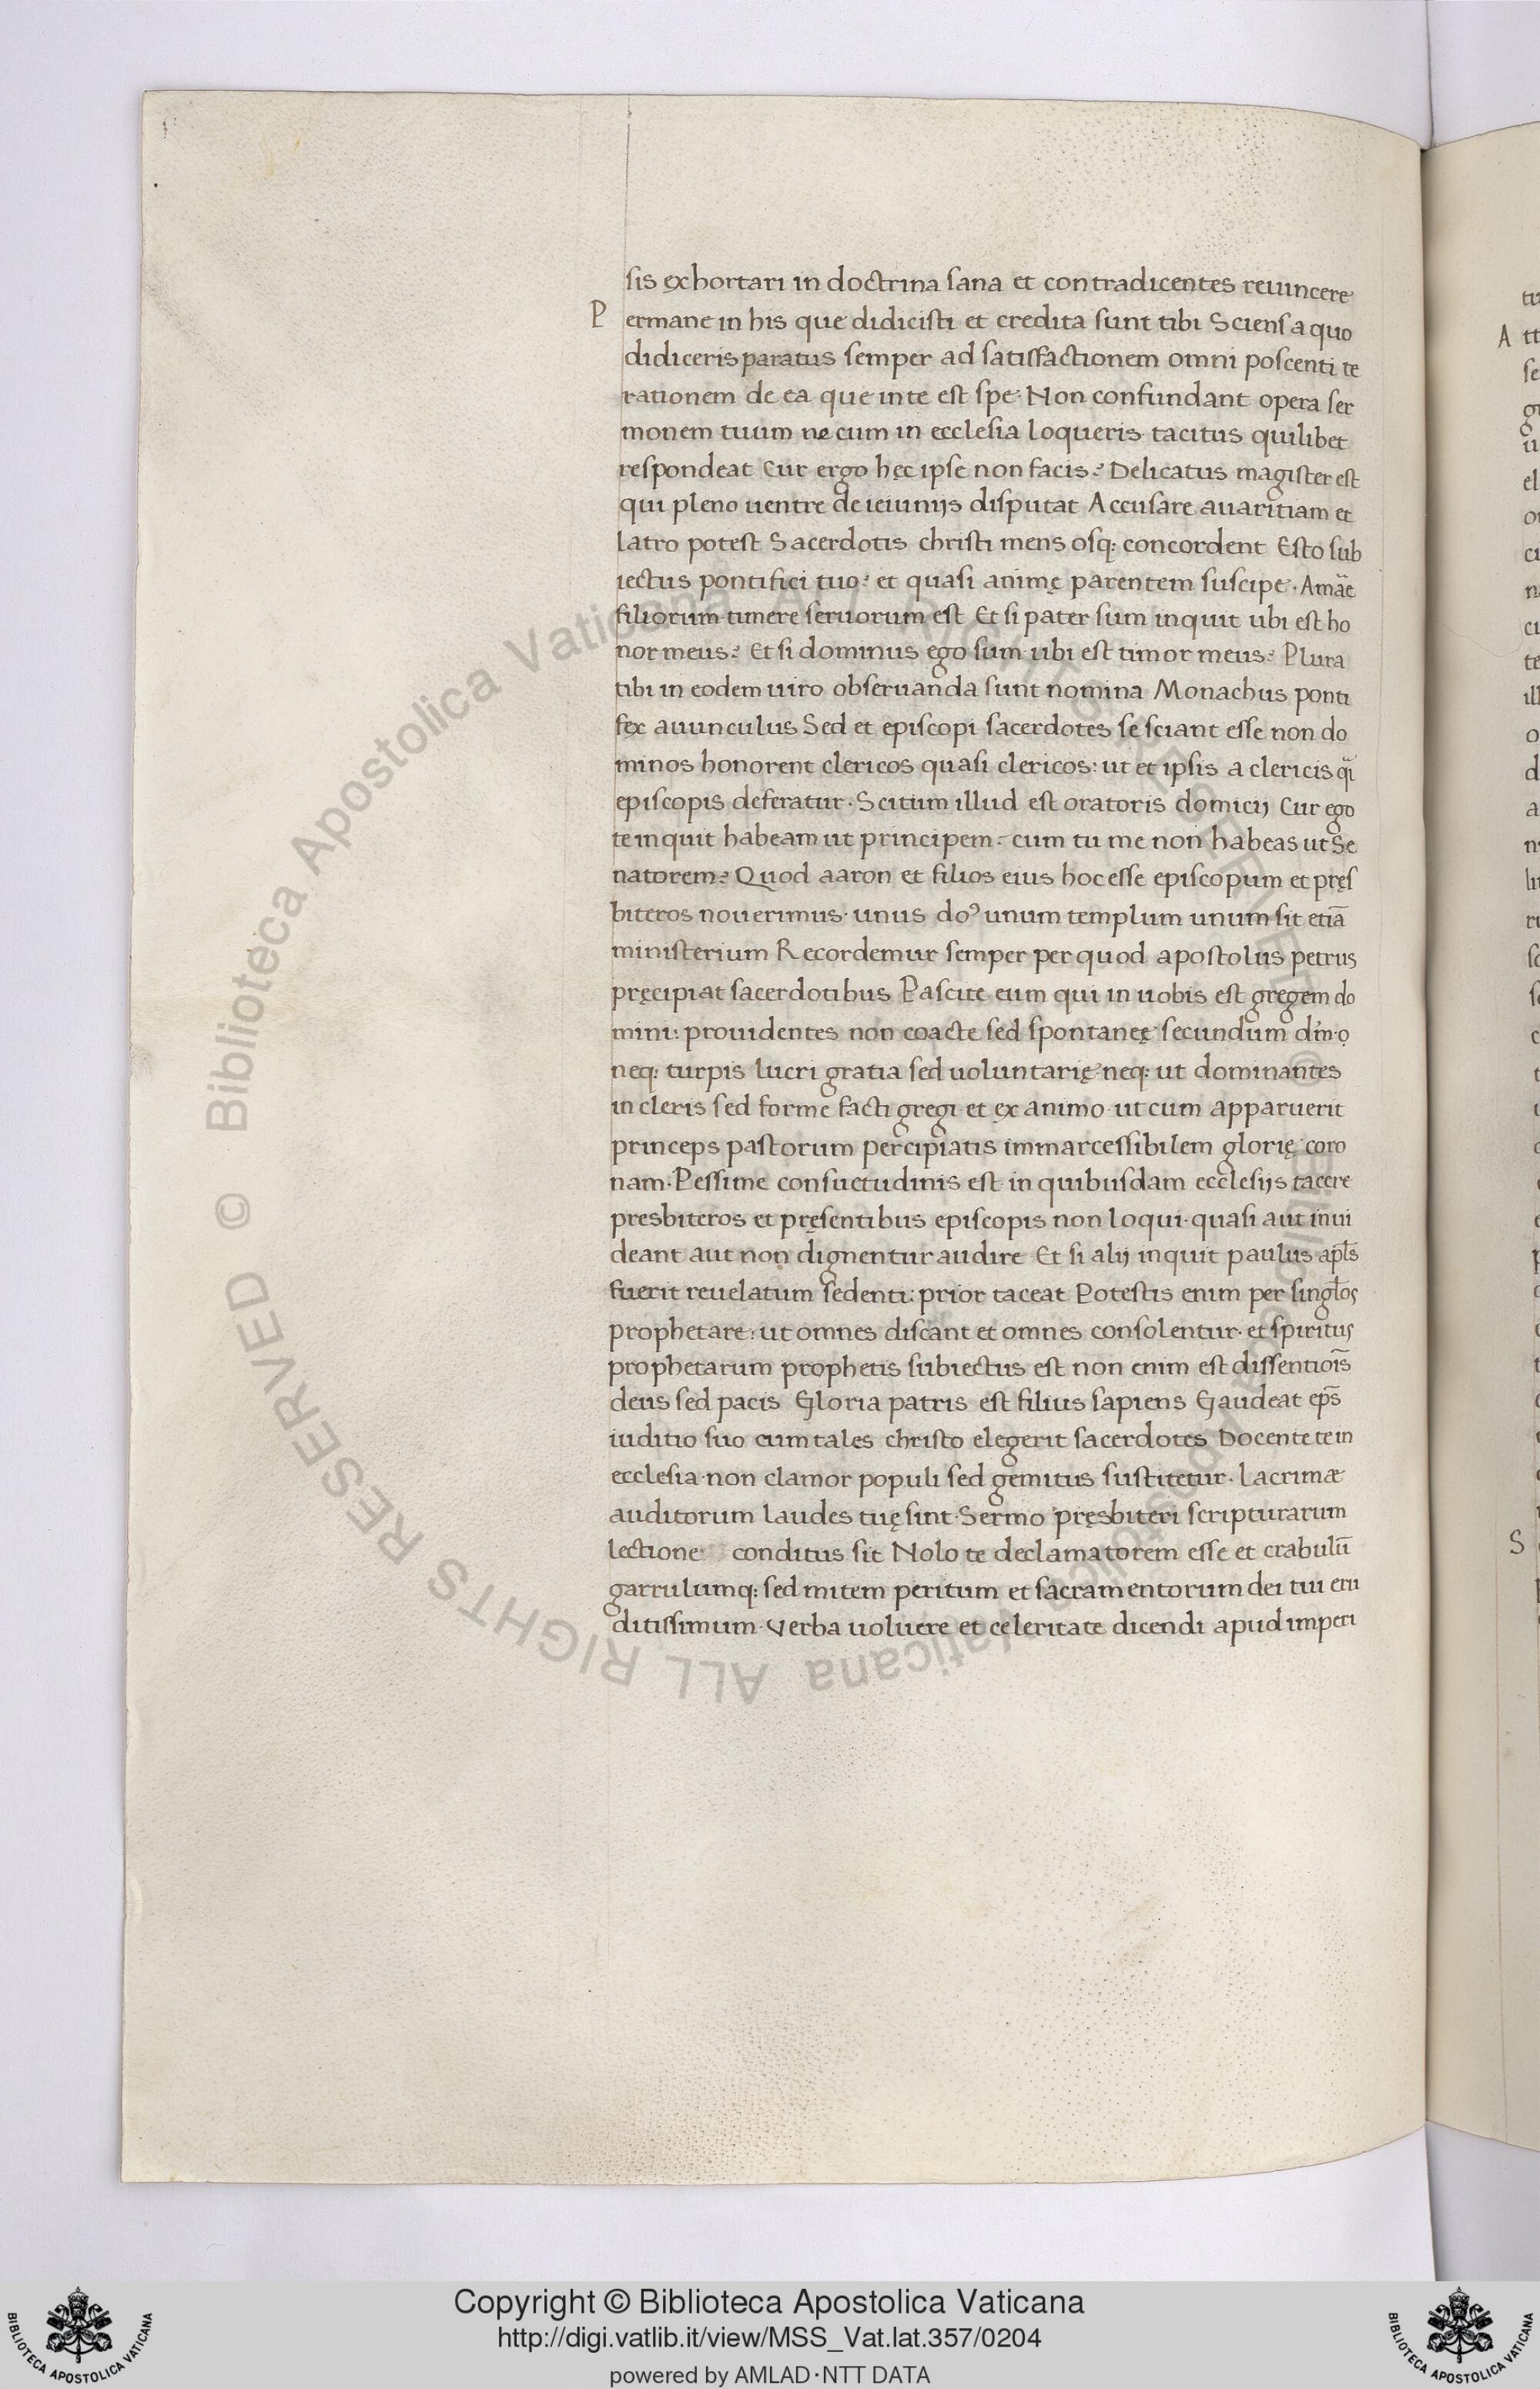 sis exhortari in doctrina sana et contradicentes reuincere
Permane in his que didicisti et credita sunt tibi Sciens a quo
didiceris paratus semper ad satisfactionem omni poscenti te
rationem de ea que in te est spe· Non confundant opera ser
monem tuum ne cum in ecclesia loqueris tacitus quilibet
respondeat Cur ergo hęc ipse non facis? Delicatus magister est
qui pleno uentre de ieiunijs disputat Accusare auaritiam et
Latro potest Sacerdotis christi mens osq; concordent Esto sub
iectus pontifici tuo? et quasi animę parentem suscipe · Amar̄e
filiorum timere seruorum est Et si pater sum inquit ubi est ho
nor meus? Et si dominus ego sum ubi est timor meus? Plura
tibi in eodem uiro obseruanda sunt nomina Monachus ponti
fex auunculus Sed et episcopi sacerdotes se sciant esse non do
minos honorent clericos quasi clericos: ut et ipsis a clericis q̄i
episcopis deferatur· Scitum illud est oratoris domicij Cur ego
te inquit habeam ut principem? cum tu me non habeas ut Se
natorem? Quod aaron et filios eius hoc esse episcopum et pręs
biteros nouerimus· unus doꝰ unum templum unum sit etiā
ministerium Recordemur semper per quod apostolus petrus
pręcipiat sacerdotibus Pascite eum qui in uobis est gregem do
mini: prouidentes non coacte sed spontaneę secundum dm̄·o
neq; turpis lucri gratia sed uoluntarię neq; ut dominantes
in cleris sed forme facti gregi et ex animo· ut cum apparuerit
princeps pastorum percipiatis immarcessibilem glorię coro
nam· Pessime consuetudinis est in quibusdam ecclesijs tacere
presbiteros et pręsentibus episcopis non loqui· quasi aut inui
deant aut non dignentur audire Et si alij inquit paulus apl̄s
fuerit reuelatum sedenti: prior taceat Potestis enim per singl̄os
prophetare: ut omnes discant et omnes consolentur· et spiritus
prophetarum prophetis subiectus est non enim est dissentiōis
deus sed pacis Gloria patris est filius sapiens Gaudeat ep̄s
iuditio suo cum tales christo elegerit sacerdotes Docente te in
ecclesia· non clamor populi sed gemitus sustitetur· Lacrimæ
auditorum laudes tuę sint· Sermo pręsbiteri scripturarum
lectione conditus sit Nolo te declamatorem esse et crabulū
garrulumq; sed mitem peritum et sacramentorum dei tui eru
ditissimum· Verba uoluere et celeritate dicendi apud imperi
© Biblioteca Apostolica Vaticana ALL RIGHTS RESERVED © Biblioteca Apostolica Vaticana ALL RIGHTS RESERVED
Copyright © Biblioteca Apostolica Vaticana
http://digi.vatlib.it/view/MSS_Vat.lat.357/0204
powered by AMLAD·NTT DATA
BIBLIOTECA APOSTOLICA VATICANA
BIBLIOTECA APOSTOLICA VATICANA